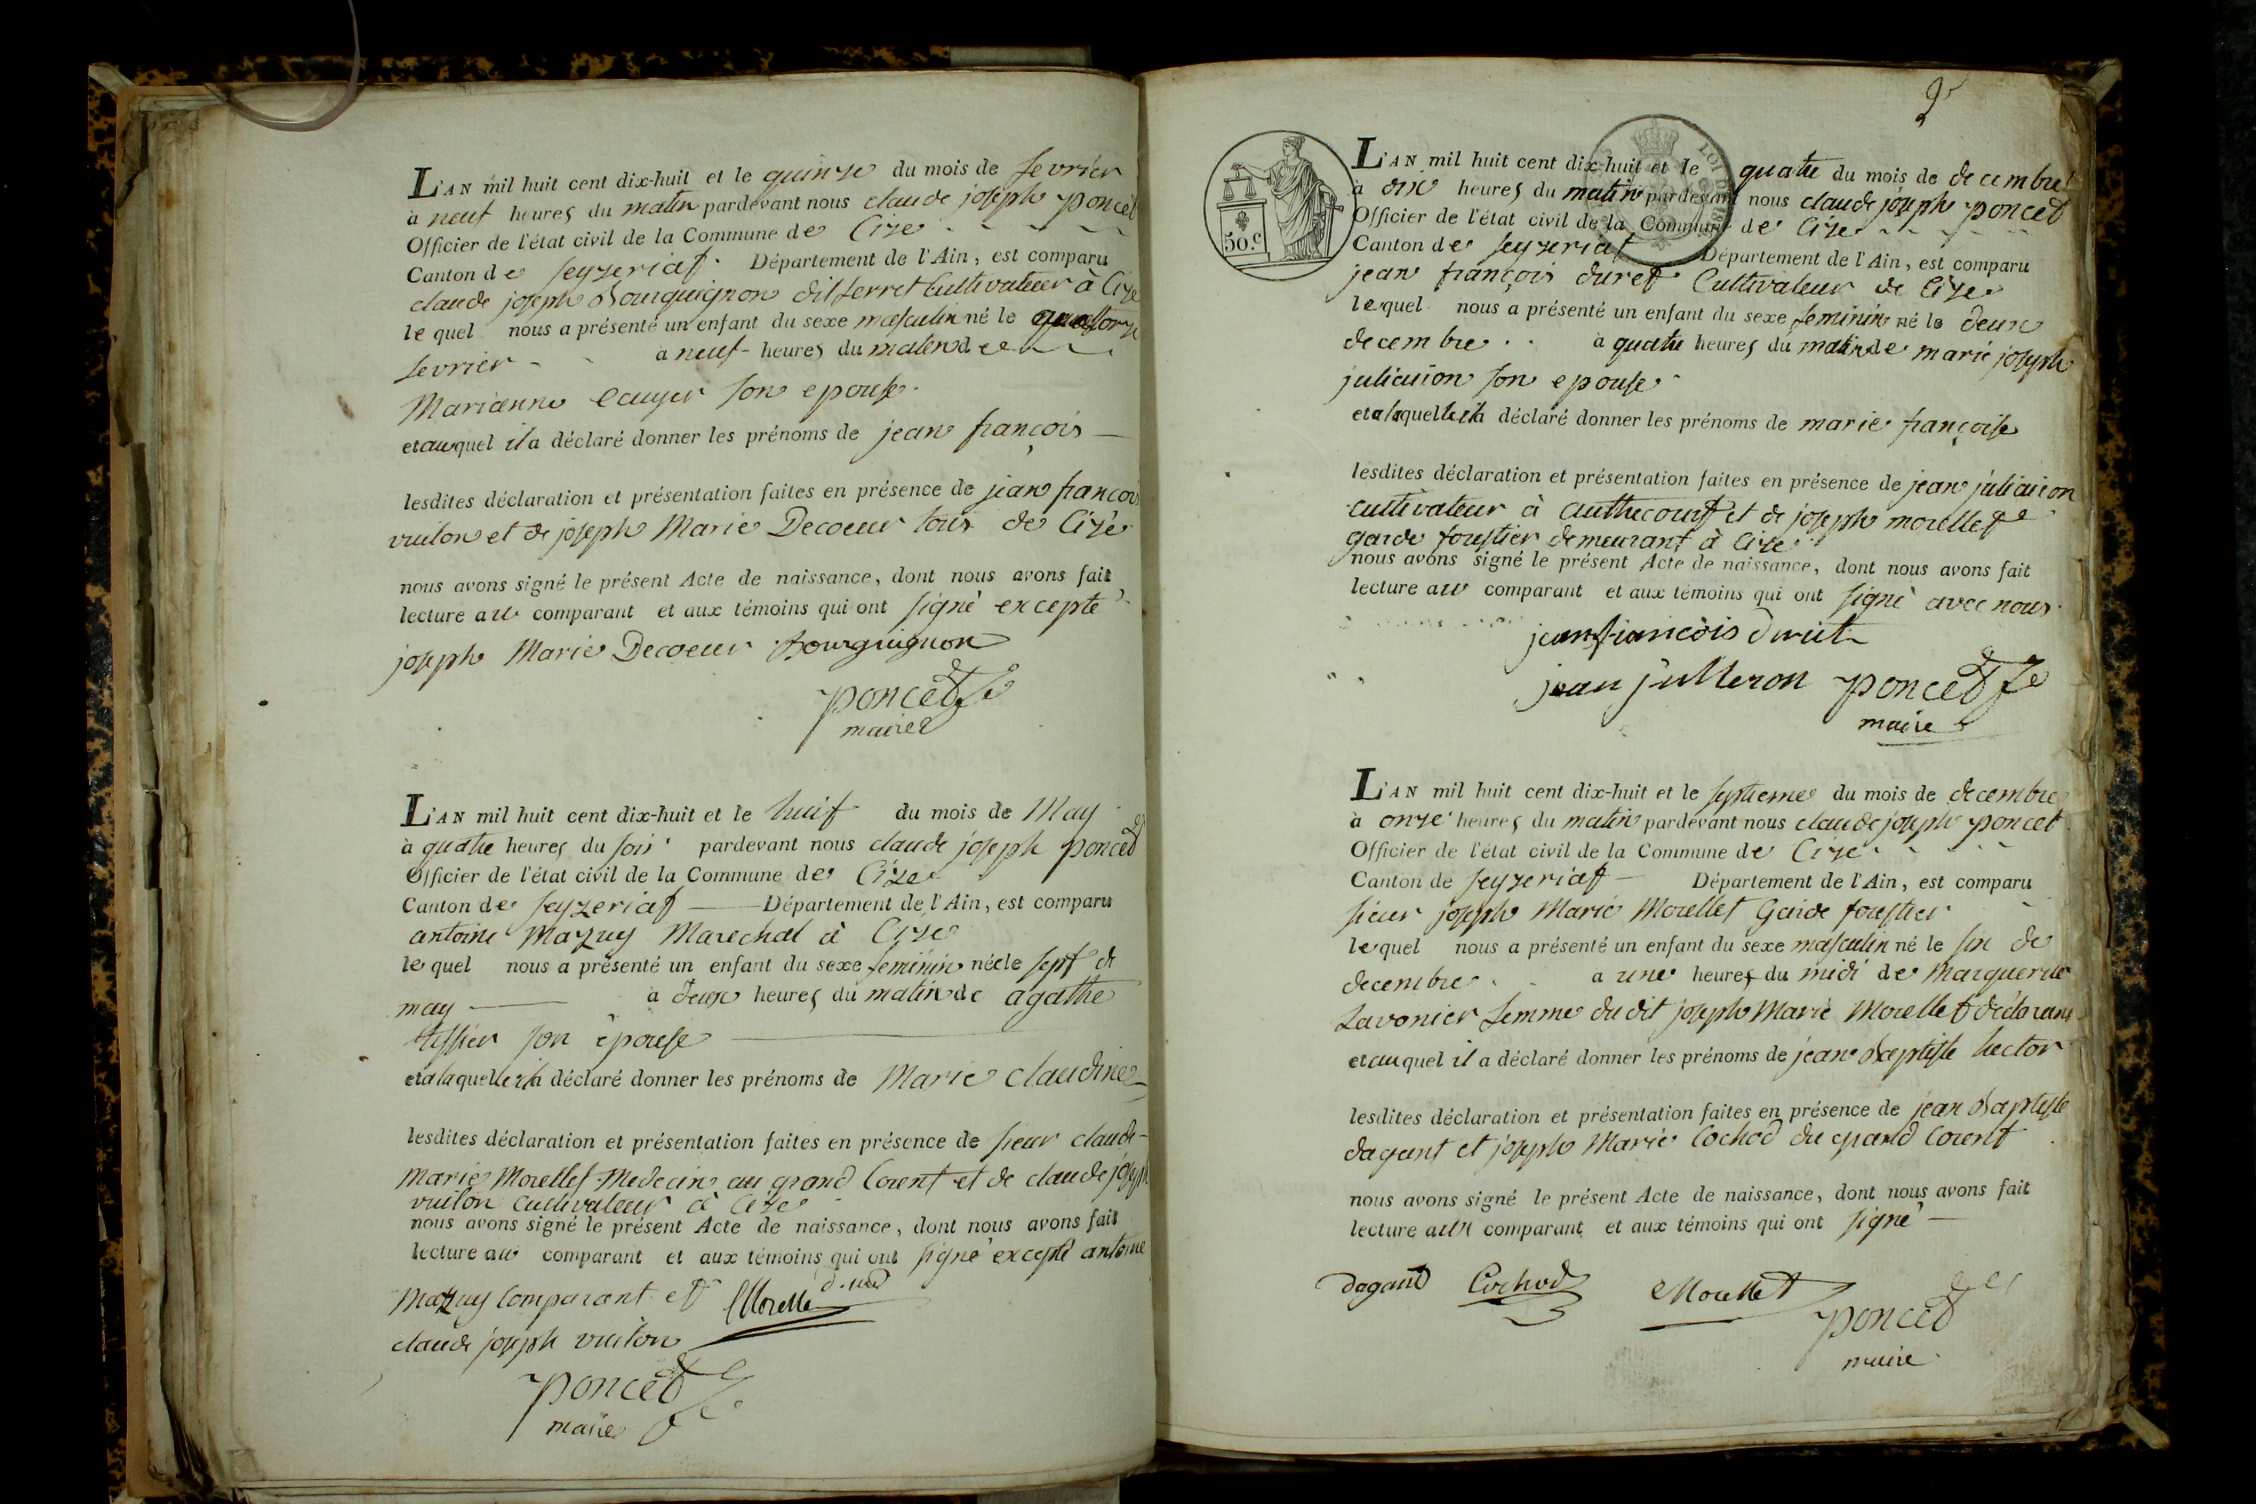 L'AN mil huit cent dix-huit et le quinze du mois de fevrier
à neuf heures du matin pardevant nous claude joseph poncet
Officier de l'état civil de la Commune de Cize
Canton de seyzeriat Département de l'Ain, est comparu
claude joseph Bourguignon dit ferret Cultivateur à Cize
le quel nous a présenté un enfant du sexe masculin né le quattorze
fevrier à neuf heures du matin de
Marianne eauyer son epouse
et auquel il a déclaré donner les prénoms de jean françois
lesdites déclaration et présentation faites en présence de jean françois
vuiton et de joseph Marie Decoeur tous de Cize
nous avons signé le présent Acte de naissance, dont nous avons fait
lecture au comparant et aux témoins qui ont signé excepté
joseph Marie Decoeur Bourguignon
poncet
maire
L'AN mil huit cent dix-huit et le huit du mois de May
à quatre heures du soir pardevant nous claude joseph poncet
Officier de l'état civil de la Commune de Cize
Canton de seyzeriat Département de l'Ain, est comparu
antoine Mazuy Marechal à Cize
le quel nous a présenté un enfant du sexe feminin née le sept de
may à deux heures du matin de agathe
tissier son épouse
et à laquelle il a déclaré donner les prénoms de Marie Claudine
lesdites déclaration et présentation faites en présence de sieur claude
marie Morellet Medecin au grand Corent et de claude joseph
vuiton cultivateur à Cize
nous avons signé le présent Acte de naissance, dont nous avons fait
lecture au comparant et aux témoins qui ont signé excepté antoine
Mazuy Comparant et Morellet
claude joseph vuiton
poncet
maire
2
50.c
L'AN mil huit cent dix-huit et le quatre du mois de decembre
à dix heures du matin pardevant nous claude joseph poncet
Officier de l'état civil de la Commune de Cize
Canton de seyzeriat Département de l'Ain, est comparu
jean françois duret Cultivateur de Cize
lequel nous a présenté un enfant du sexe feminin né le deux
decembre à quatre heures du matin de marie joseph
juliaison son epouse
et à laquelle il a déclaré donner les prénoms de marie françoise
lesdites déclaration et présentation faites en présence de jean juliaison
cultivateur à authecourt et de joseph morellet
garde forestier demeurant à Cize
nous avons signé le présent Acte de naissance, dont nous avons fait
lecture au comparant et aux témoins qui ont signé avec nous
jean françois duret
jean julleron poncet
maire
L'AN mil huit cent dix-huit et le septieme du mois de decembre
à onze heures du matin pardevant nous claude joseph poncet
Officier de l'état civil de la Commune de Cize
Canton de seyzeriat Département de l'Ain, est comparu
sieur joseph Marie Morellet Garde forestier
lequel nous a présenté un enfant du sexe masculin né le six de
decembre a une heures du midi de Marguerite
Savonier femme du dit joseph Marie Morellet déclarant
et auquel il a déclaré donner les prénoms de jean Baptiste hector
lesdites déclaration et présentation faites en présence de jean Baptiste
dagant et joseph Marie Cochod du grand Corent
nous avons signé le présent Acte de naissance, dont nous avons fait
lecture aux comparant et aux témoins qui ont signé
dagand Cochod Morellet poncet
maire